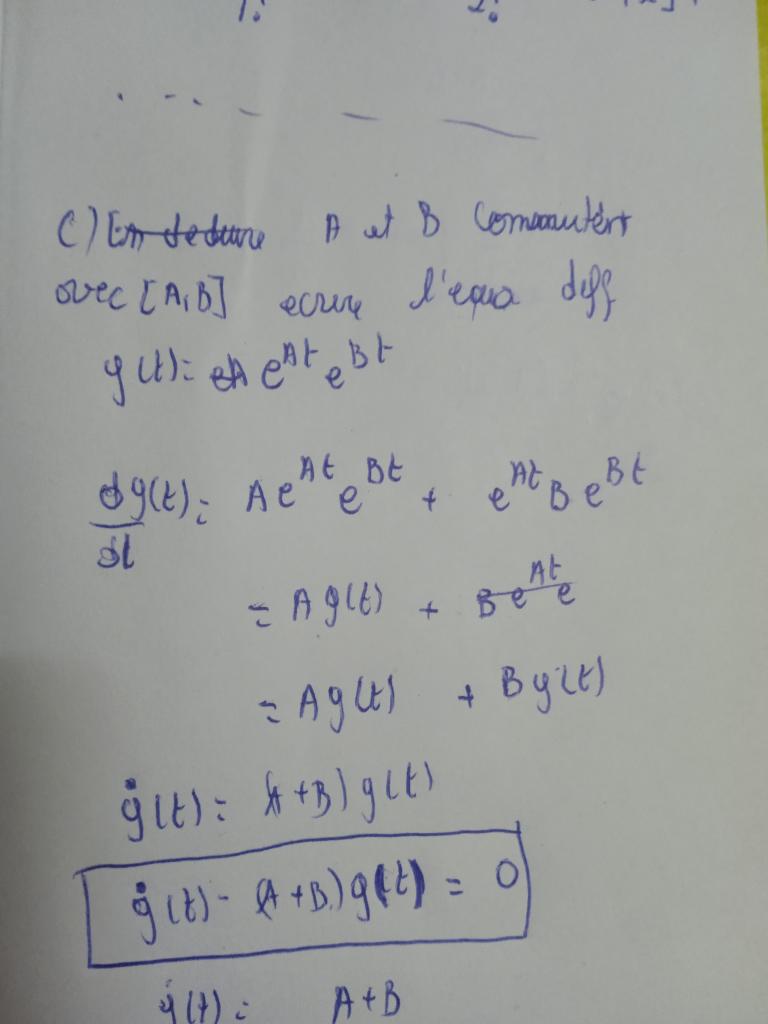 C) En deduire A et B Commutent
avec [A,B] ecrire l'equa diff
g(t) = eA e^{At} e^{Bt}
dg(t)/dt = A e^{At} e^{Bt} + e^{At} B e^{Bt}
= A g(t) + B e^{At} e
= A g(t) + B g(t)
ġ(t) = (A+B) g(t)
ġ(t) - (A+B) g(t) = 0
ġ(t) = A+B